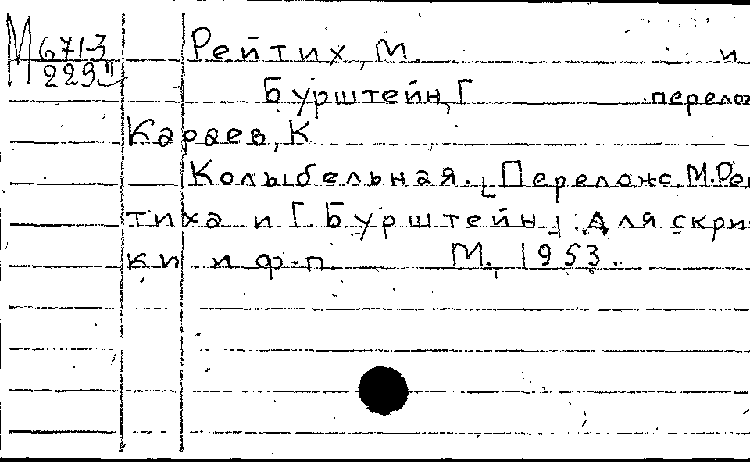 М 671-3
229
Рейтих, М. и
Бурштейн, Г перелож
Караев, К
Колыбельная. [Перелож. М. Рей
тиха и Г. Бурштейн]. Для скрип
ки и ф-п М., 1953.